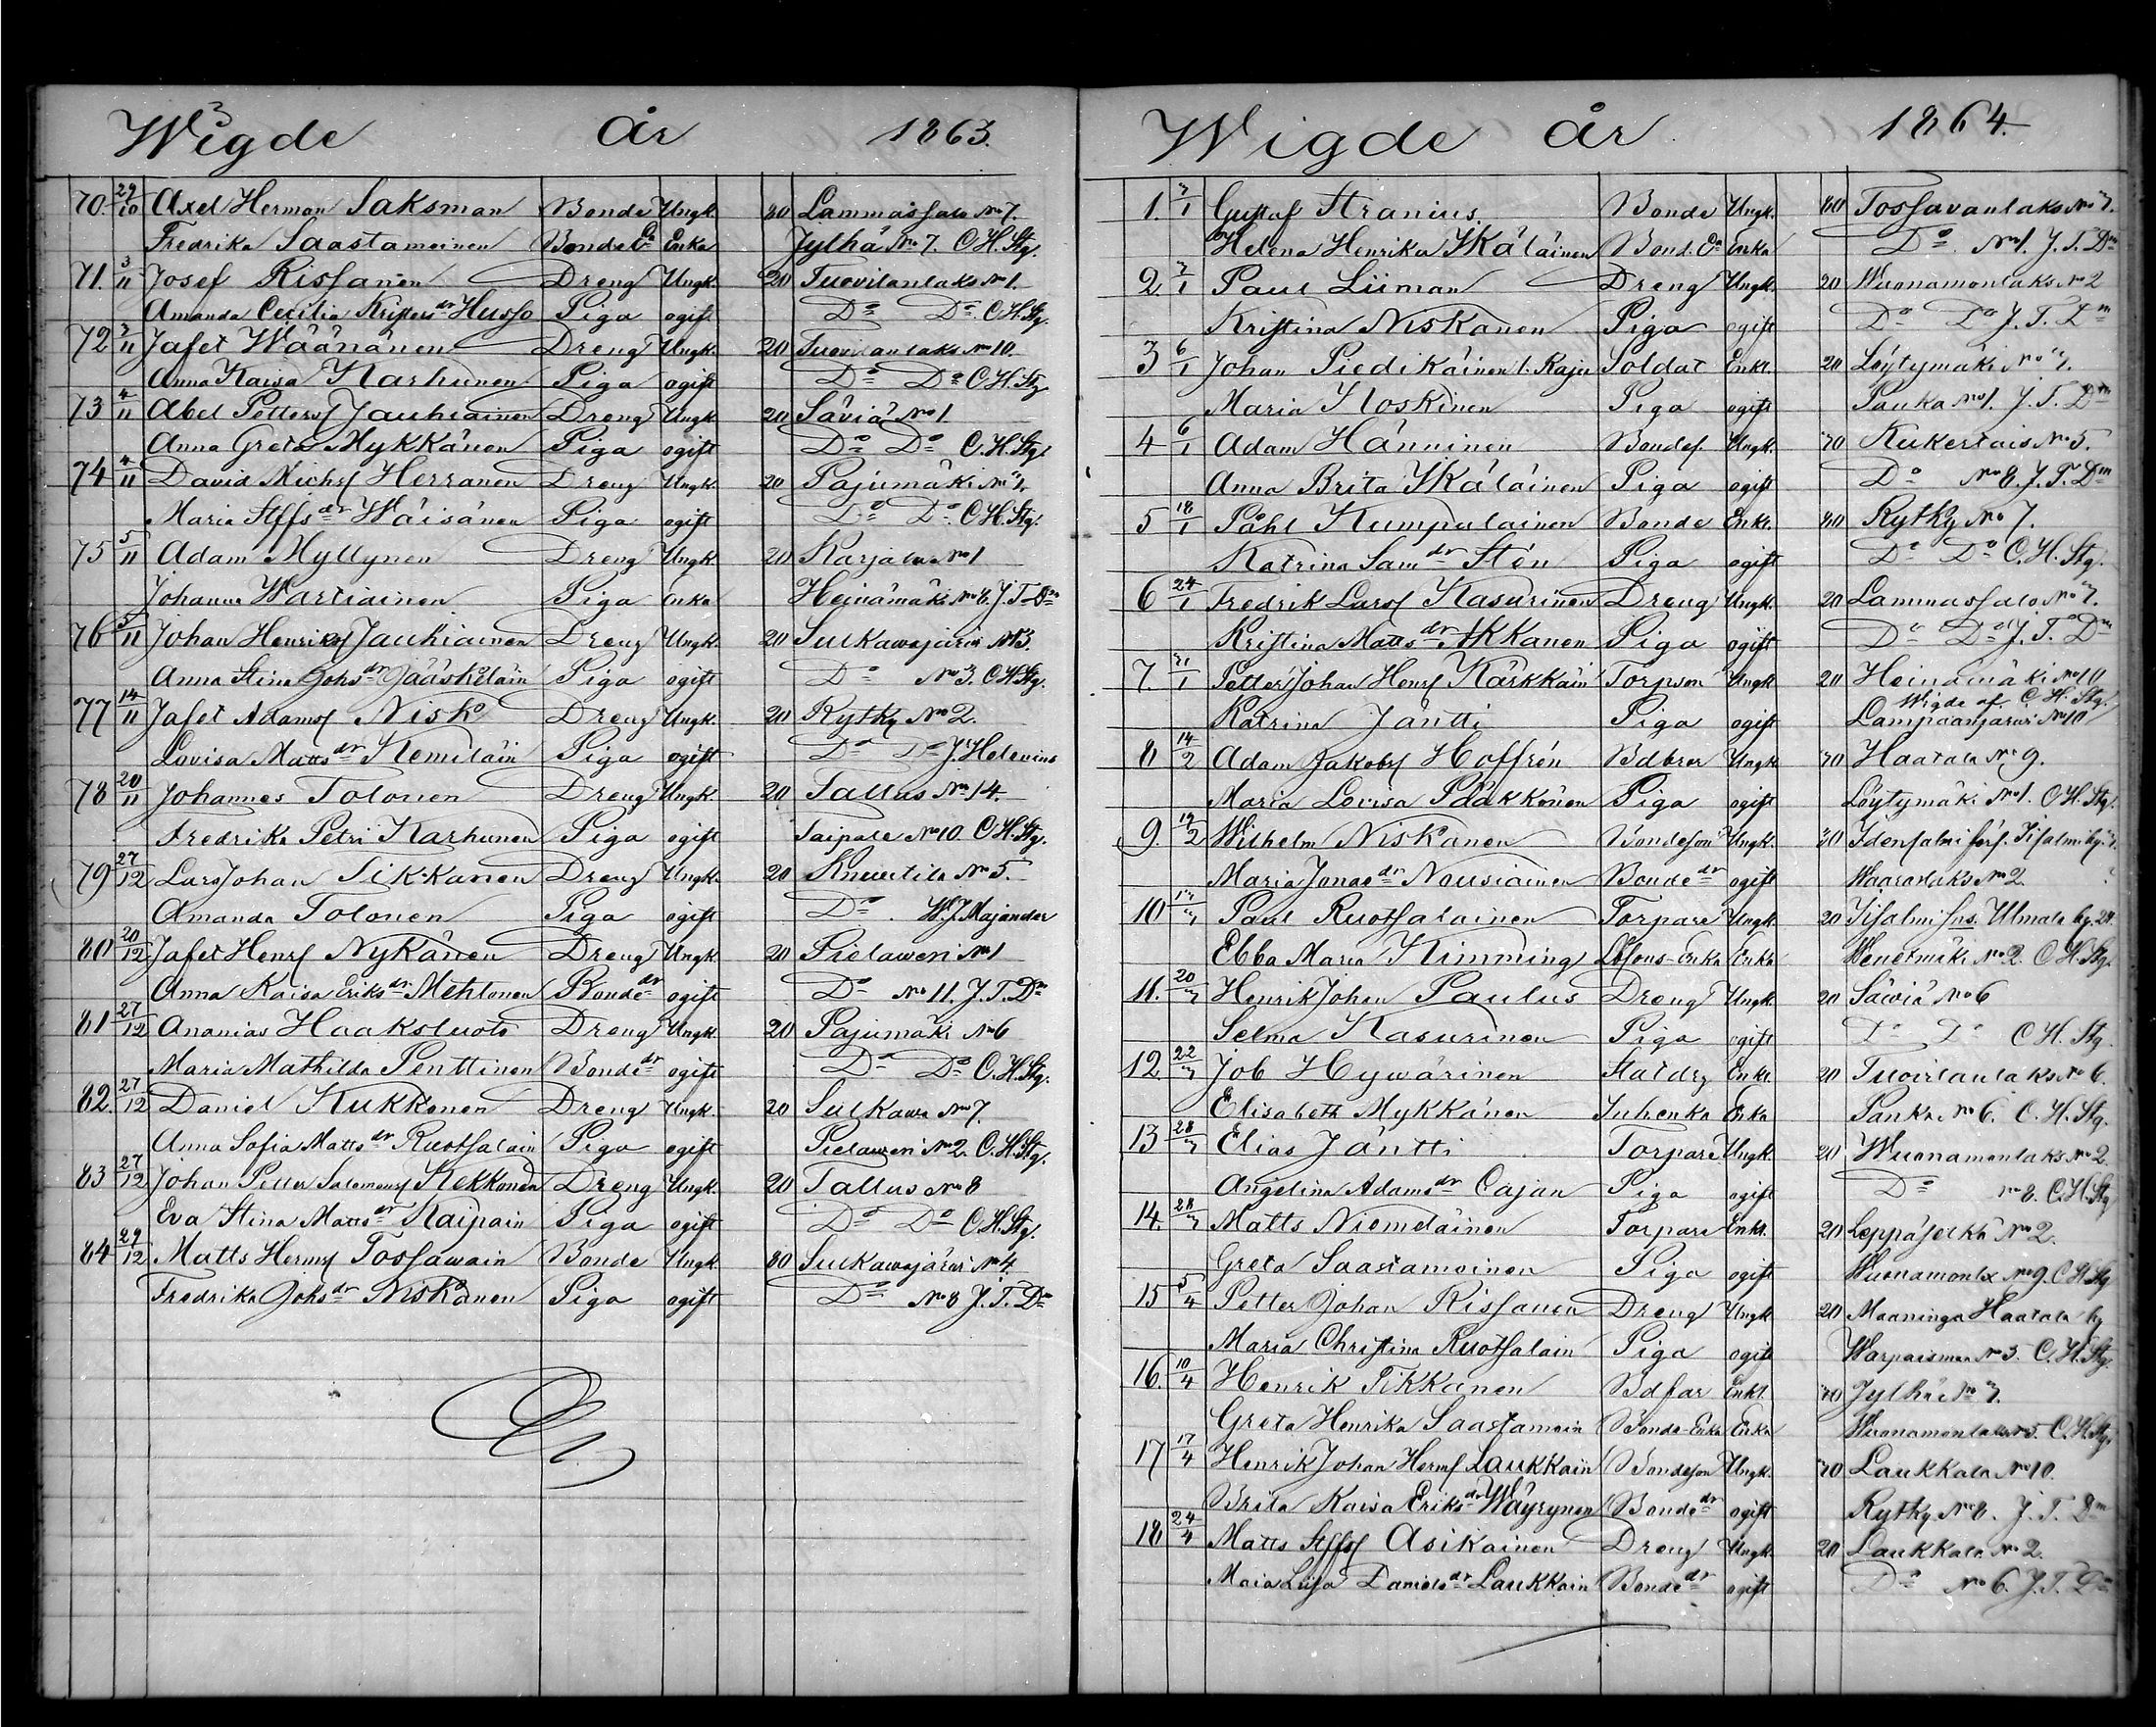 Wigde år 1863.
70. 29/10 Axel Herman Saksman Bonde Ungk. 80 Lammassalo No 7.
Fredrika Saastamoinen Bonde Ea Enka Jylhä No 7. C.H.Stg.
71. 3/11 Josef Rissanen Dreng Ungk. 20 Tuovilanlaks No 1.
Amanda Cecilia Kristers dr Husso Piga ogift Do Do C.H.Stg.
72 3/11 Jafet Wäänänen Dreng Ungk. 20 Tuovilanlaks No 10.
Anna Kaisa Karhunen Piga ogift Do Do C.H.Stg.
73 4/11 Abel Petterss Jauhiainen Dreng Ungk. 20 Säviä No 1.
Anna Greta Mykkänen Piga ogift Do Do C.H.Stg.
74 4/11 David Michss Herranen Dreng Ungk. 20 Pajumäki No 7.
Maria Stffs dr Wäisänen Piga ogift Do Do C.H.Stg.
75 5/11 Adam Myllynen Dreng Ungk. 20 Karjala No 1
Johanna Wartiainen Piga Enka Heinämäki No 8. J.T.Dm
76 5/11 Johan Henrikss Jauhiainen Dreng Ungk. 20 Sulkawajärvi No 3.
Anna Stina Johs dr Jääskeläin Piga ogift Do No 3. C.H.Stg.
77 14/11 Jafet Adamss Nisk Dreng Ungk. 20 Rytky No 2.
Lovisa Matts dr Kemiläin Piga ogift Do Do J. Helenius
78 20/11 Johannes Tolonen Dreng Ungk. 20 Tallus No 14.
Fredrika Petri Karhunen Piga ogift Taipale No 10. C.H.Stg.
79 27/12 Lars Johan Tikkanen Dreng Ungk. 20 Kneutila No 5.
Amanda Tolonen Piga ogift Do W.J. Majander
80 20/12 Jafet Henrs Nykänen Dreng Ungk. 20 Pielawesi No 1
Anna Kaisa Eriks dr Mehtonen Bonde dr ogift Do No 11. J.T.Dm
81 27/12 Ananias Haaksluoto Dreng Ungk. 20 Pajumäki No 6
Maria Mathilda Penttinen Bonde dr ogift Do Do C.H.Stg.
82. 27/12 Daniel Kukkonen Dreng Ungk. 20 Sulkawa No 7.
Anna Sofia Matts dr Ruotsalain Piga ogift Pielawesi No 2. C.H.Stg.
83 27/12 Johan Petter Salomonss Kekkonen Dreng Ungk. 20 Tallus No 8
Eva Stina Matts dr Raipain Piga ogift Do Do C.H.Stg.
84 29/12 Matts Hermss Tossawain Bonde Ungk. 80 Sulkawajärvi No 4.
Fredrika Johs dr Niskanen Piga ogift Do No 8 J.T.Dm
Wigde år 1864.
1. 7/1 Gustaf Stranius. Bonde Ungk. 80 Tossavanlaks No 7.
Helena Henrika Ikäläinen Bond. Ea Enka Do No 1. J.T.Dm
2. 7/1 Paul Liiman Dreng Ungk. 20 Wuonamonlaks No 2
Kristina Niskanen Piga ogift Do Do J.T.Dm
3 6/1 Johan Piedikäinen l. Raju Soldat Enkl. 20 Löytymäki No 7.
Maria Koskinen Piga ogift Pauka No 1. J.T.Dm
4 6/1 Adam Hänninen Bondes. Ungk. 70 Kukertais No 5.
Anna Brita Ikäläinen Piga ogift Do No 8. J.T.Dm
5 18/1 Påhl Kumpulainen Bonde Enkl. 80 Rytky No 7.
Katrina Sam dr Stén Piga ogift Do Do C.H.Stg.
6 24/1 Fredrik Larss Kasurinen Dreng Ungk. 20 Lammassalo No 7.
Kristina Matts dr Akkanen Piga ogift Do Do J.T.Dm
7. 31/1 Petter Johan Henrs Kärkkäin Torpson Ungk. 20 Heinämäki No 10
Wigde af C.H.Stg.
Katrina Jäntti Piga ogift Lampaanjärvi No 10
8 14/2 Adam Jakobss Hoffrén Bdbror Ungk. 70 Haatala No 9.
Maria Lovisa Pääkkönen Piga ogift Löytymäki No 1. C.H.Stg.
9. 19/2 Wilhelm Niskanen Bondeson Ungk. 30 Idensalmi förs. Iisalmi by
Maria Jonas dr Nousiainen Bonde dr ogift Waaraslaks No 2.
10 Paul Ruotsalainen Torpare Ungk. 20 Iisalmi fss. Ulmala by. 24.
Ebba Maria Kimming Enka Wenetmäki No 2. C.H.Stg.
11. 20/3 Henrik Johan Paulus Dreng Ungk. 20 Säwiä No 6
Selma Kasurinen Piga ogift Do Do C.H.Stg.
12. 22/3 Job Hywärinen Statdrg Enkl. 20 Tuovilanlaks No 6.
Elisabeth Mykkänen Inhenka Enka Panka No 6. C.H.Stg.
13 28/3 Elias Jäntti Torpare Ungk. 20 Wuonamonlaks No 2.
Angelina Adams dr Cajan Piga ogift Do No 8. C.H.Stg
14. 28/3 Matts Niemeläinen Torpare Enkl. 20 Leppäselkä No 2.
Greta Saastamoinen Piga ogift Wuonamonlx No 9. C.H.Stg
15 5/4 Petter Johan Rissanen Dreng Ungk 20 Maaninga Haatala by
Maria Christina Ruotsalain Piga ogift Warpaisman No 3. C.H.Stg.
16. 10/4 Henrik Tikkanen Bdfar Enkl. 70 Jylhä No 7.
Greta Henrika Saastamoin Bonde-Enka Enka Wuonamonlaks No 5. C.H.Stg.
17 17/4 Henrik Johan Hermss Laukkain Bondeson Ungk. 70 Laukkala No 10.
Brita Kaisa Eriks dr Wäyrynen Bonde dr ogift Rytky No 8. J.T.Dm
18 24/4 Matts Stffss Asikainen Dreng Ungk. 20 Laukkala No 2.
Maia Liisa Daniels dr Laukkain Bonde dr ogift Do No 6. J.T.Dm